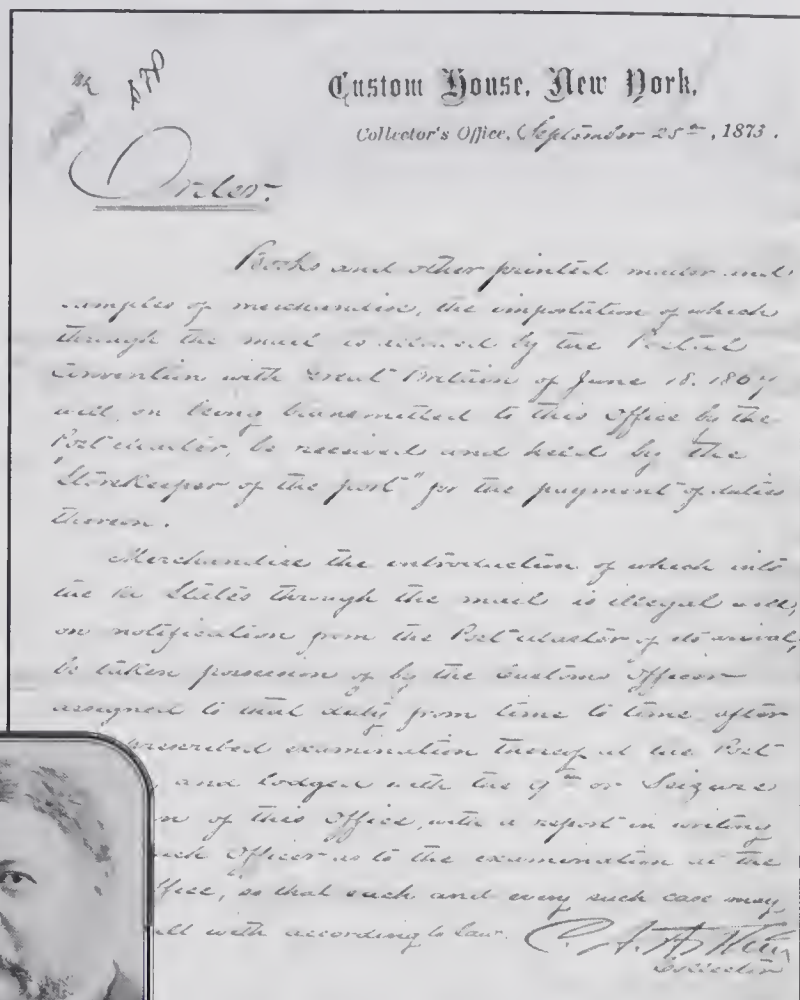 Custom House, New York,
Collector's Office, September 25th, 1873.
Order.
Books and other printed matter and
samples of merchandise, the importation of which
through the mail is allowed by the Postal
Convention with Great Britain of June 18. 1867
will, on being transmitted to this Office by the
Post master, be received and held by the
"Storekeeper of the port" for the payment of duties
thereon.
Merchandise the introduction of which into
the States through the mail is illegal will,
on notification from the Post Master of its arrival,
be taken possession of by the Customs Officer
assigned to that duty from time to time after
prescribed examination thereof at the Post
, and lodged with the 9th or Seizure
n of this Office, with a report in writing
uch Officer as to the examination at the
ffice, so that such and every such case may
alt with according to law. C. A. Arthur
Collector